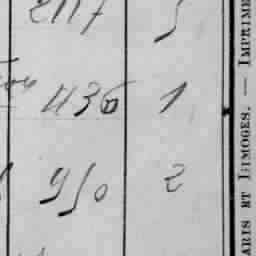 2117 5
436 1
950 2
ARIS ET LIMOGES. — IMPRIME